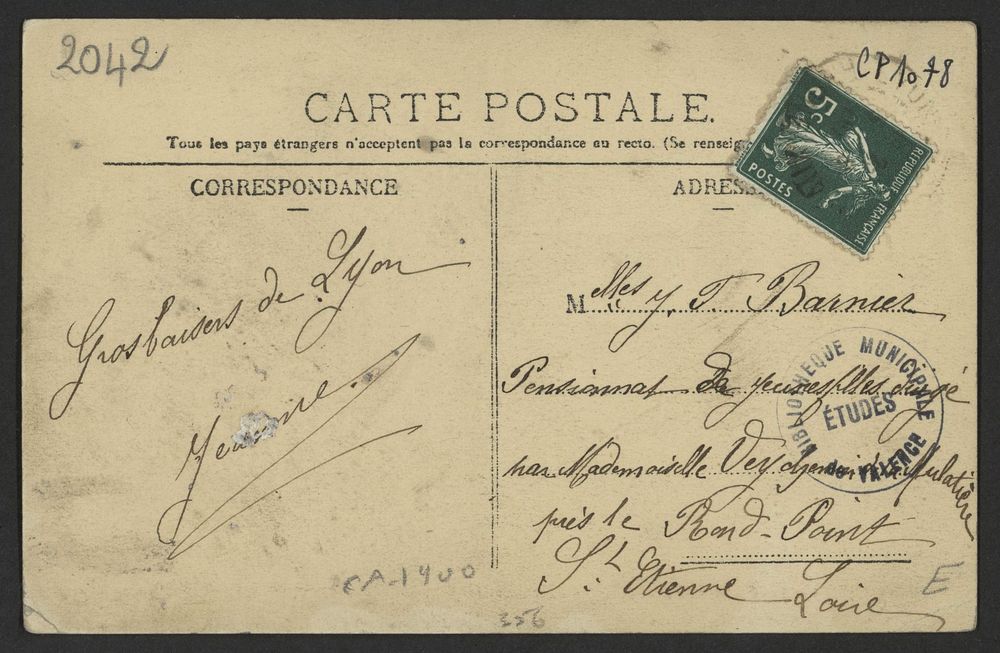 2042
CP1078
CARTE POSTALE.
Tous les pays étrangers n'acceptent pas la correspondance au recto. (Se renseig
5c
POSTES
REPUBLIQUE FRANÇAISE
CORRESPONDANCE
ADRESS
Gros baisers de Lyon
Jeanne
Melles Y. T. Barnier
Pensionnat de jeunes filles dirigé
par Mademoiselle Vey chemin de la Mulatière
près le Rond-Point
St Etienne Loire
BIBLIOTHEQUE MUNICIPALE
ÉTUDES
de VALENCE
CA-1900
356
E